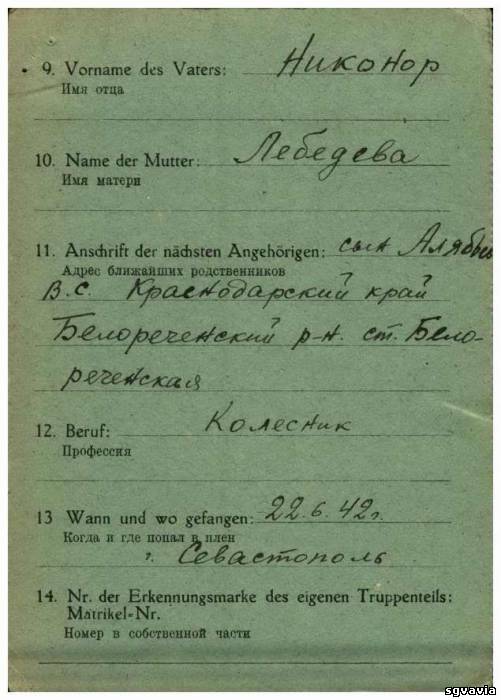 9. Vorname des Vaters: Никонор
Имя отца
10. Name der Mutter: Лебедева
Имя матери
11. Anschrift der nächsten Angehörigen: сын Алябьев
Адрес ближайших родственников
В.С. Краснодарский край
Белореченский р-н. ст. Бело-
реченская
12. Beruf: Колесник
Профессия
13 Wann und wo gefangen: 22.6.42г.
Когда и где попал в плен
г. Севастополь
14. Nr. der Erkennungsmarke des eigenen Truppenteils:
Matrikel-Nr.
Номер в собственной части
sgvavia